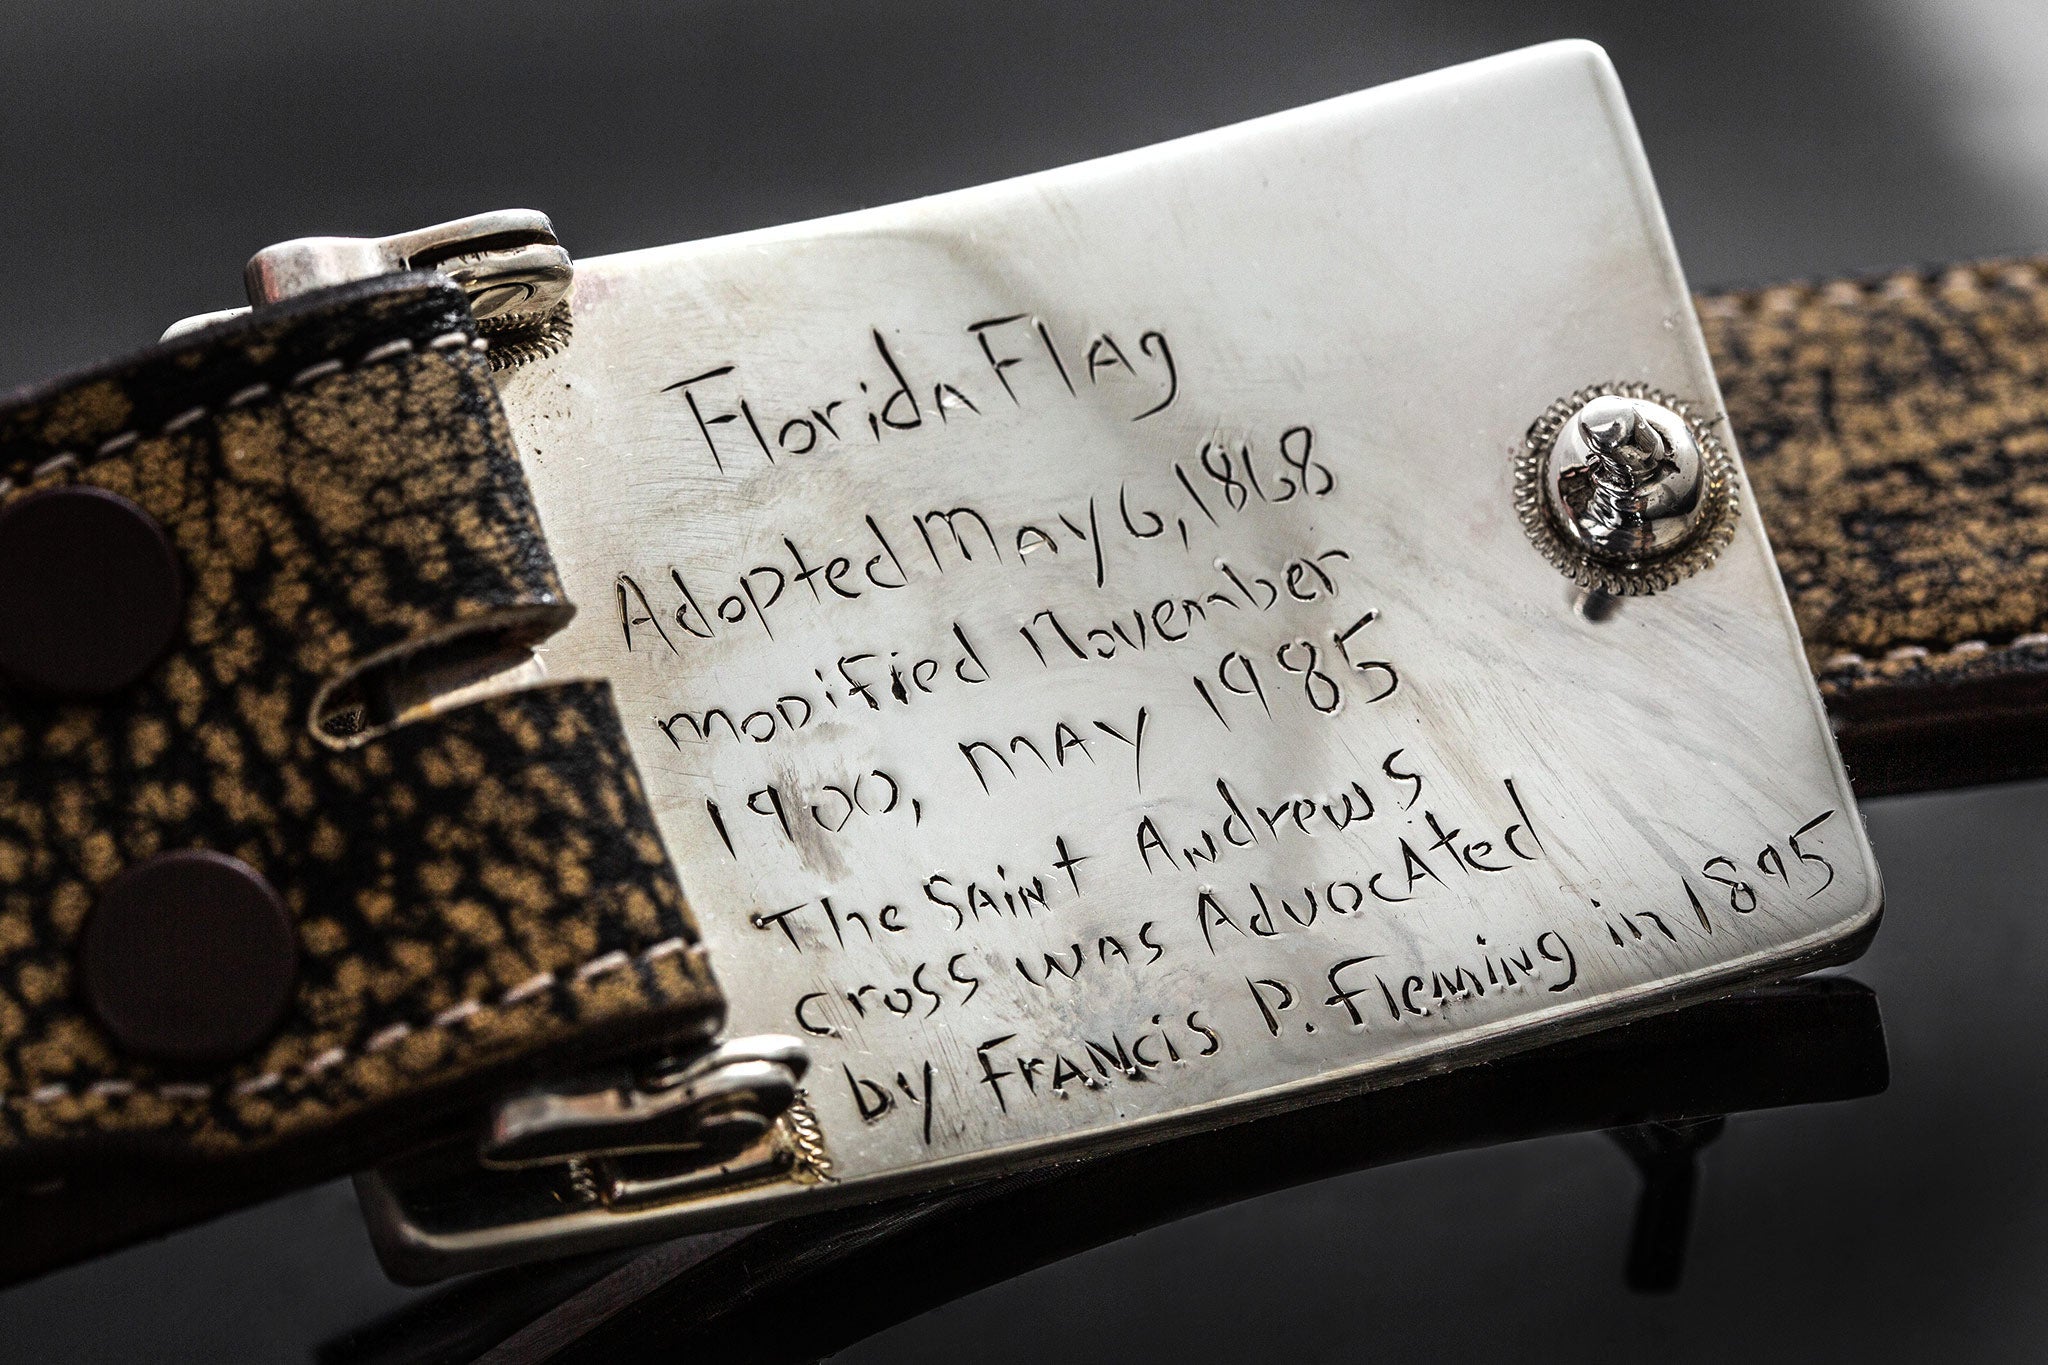 Florida Flag
Adopted May 6, 1868
modified November
1900, MAY 1985
The SAiNt Andrews
cross was Advocated
by FrANcis P. Fleming in 1895